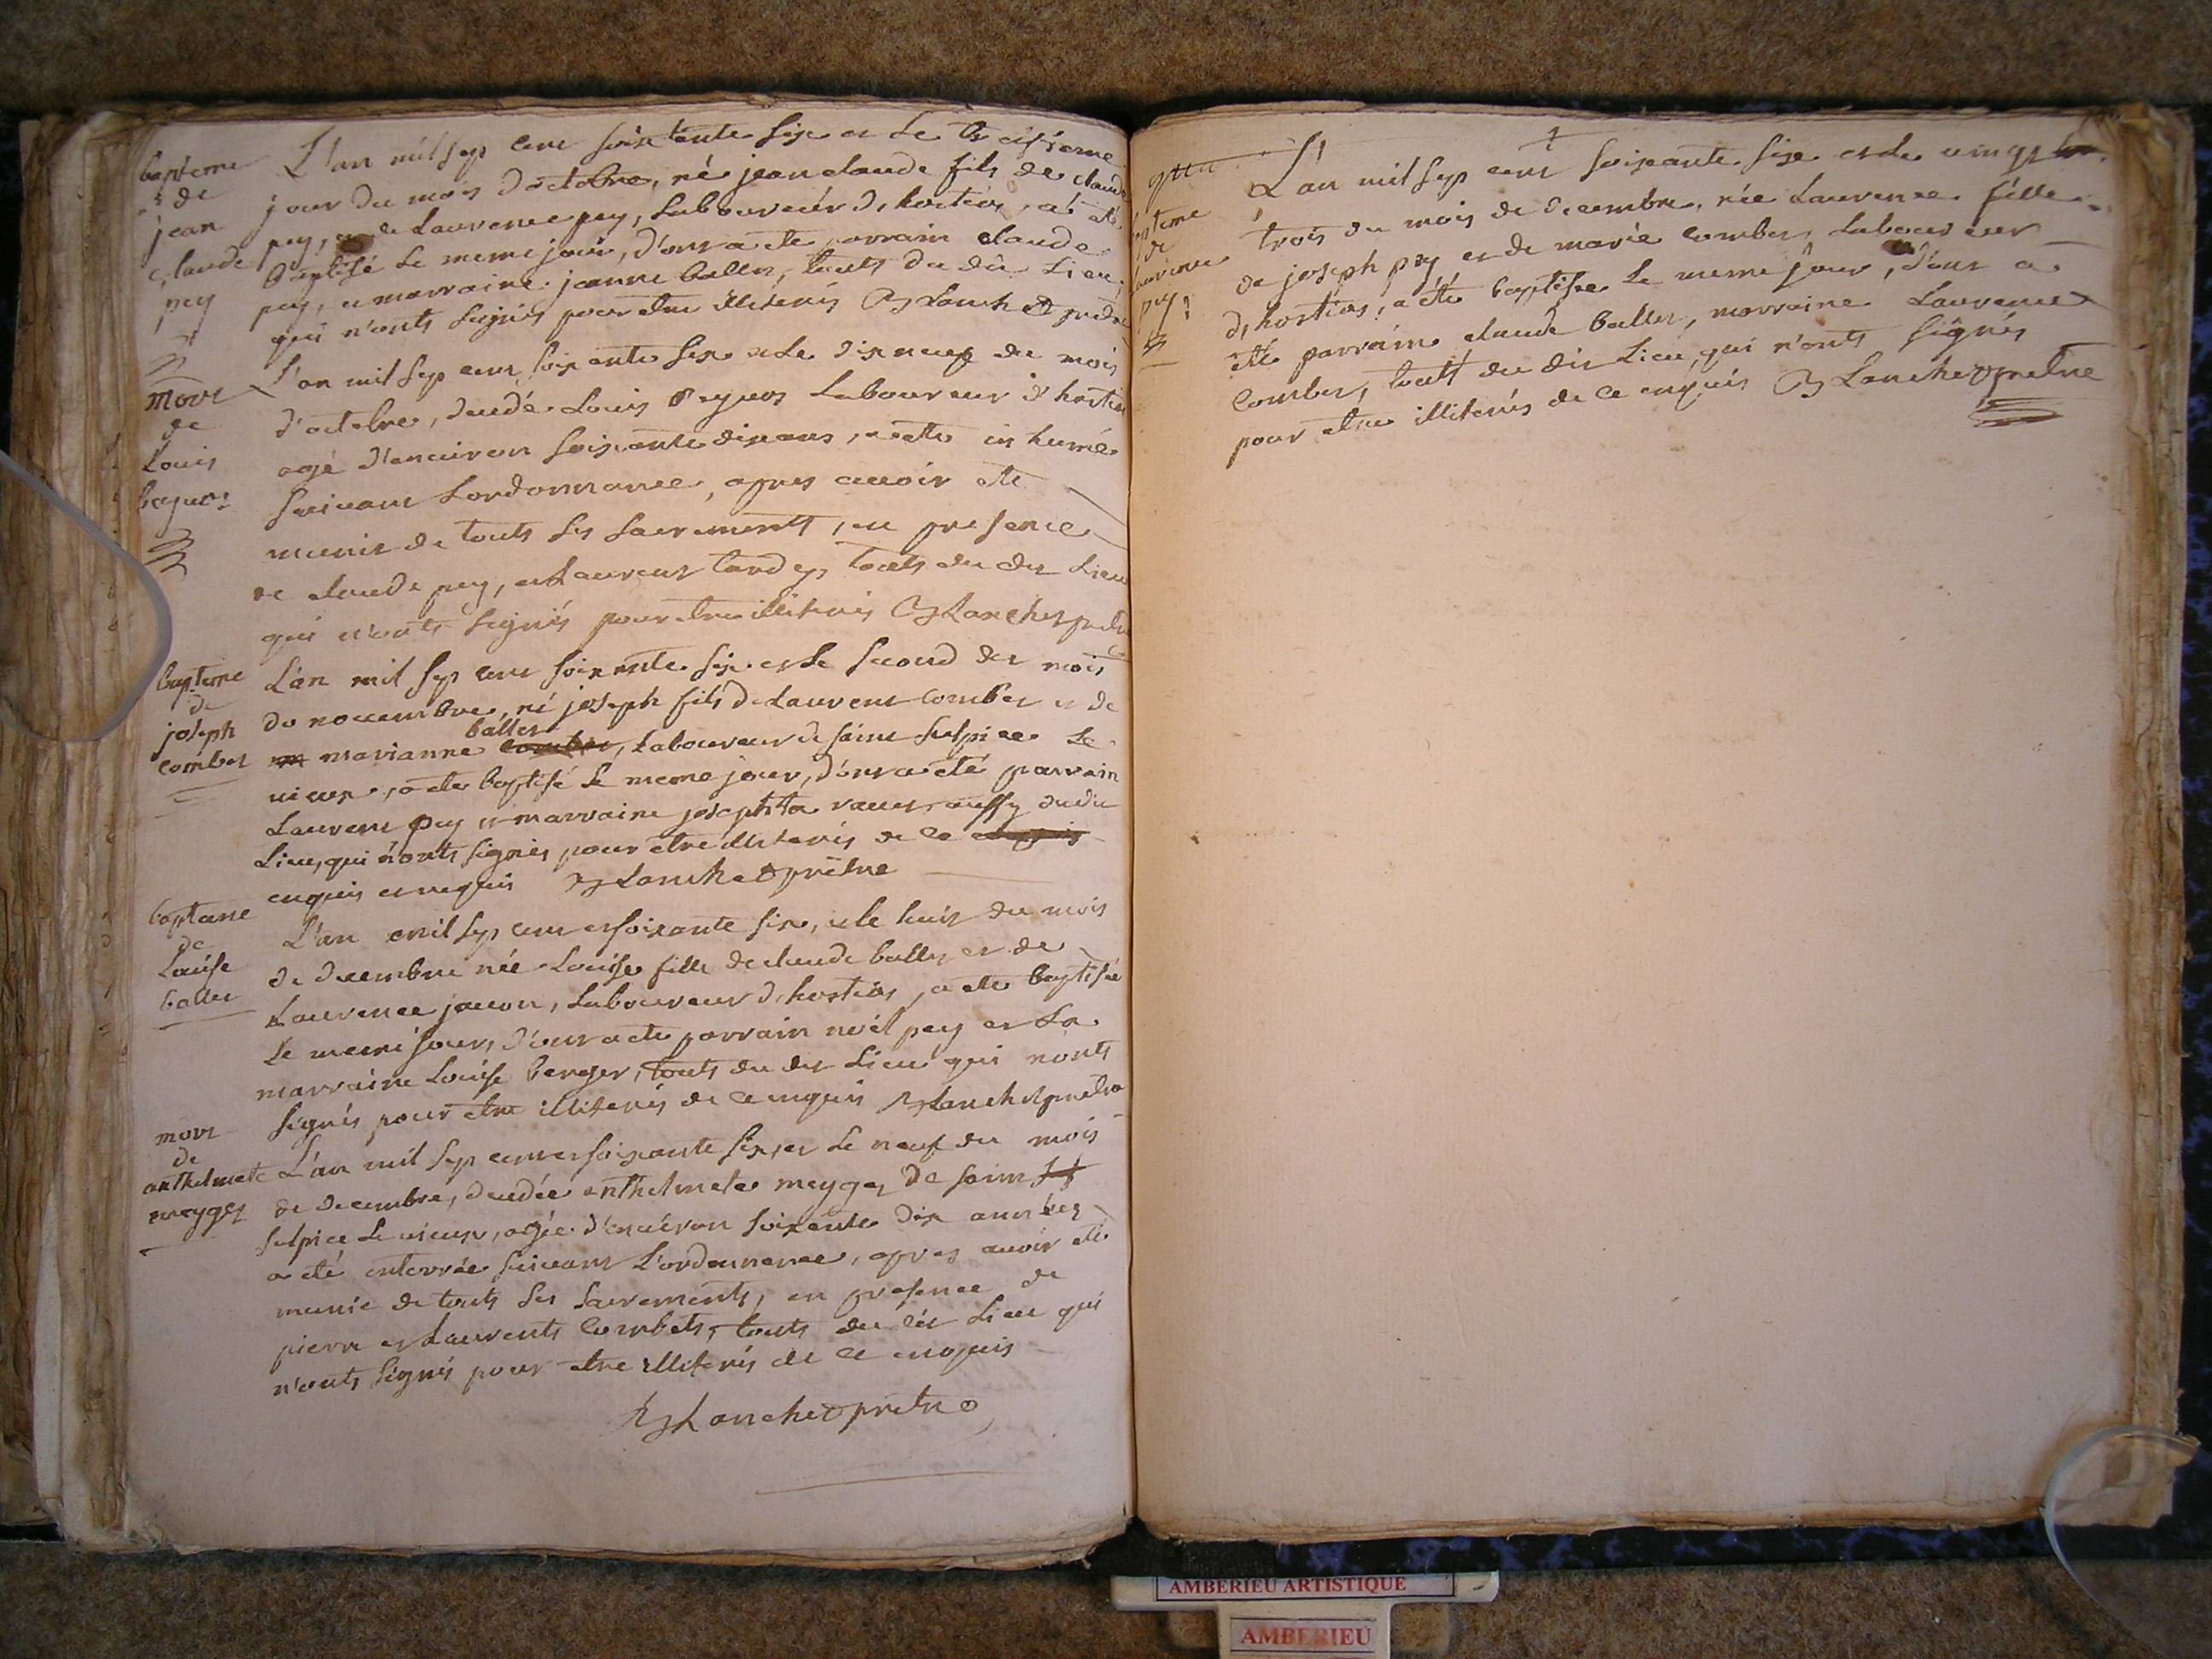 bapteme
de
jean
claude
pey
L'an mil sept cent soixante six et le treisieme
jour du mois d'octobre, né jean claude fils de claude
pey, et de Laurence pey, Laboureur d'hostias, a été
baptisé le meme jour, d'ont a été parrain claude
pey, et marraine jeanne ballet, touts du dit Lieu,
qui n'onts signés pour etre illiterés Lanchet pretre
mort
de
Louis
L'an mil sept cent soixante six et le dix neuf du mois
d'octobre, decedé Louis Laboureur d'hostias
agé d'environ soixante dix ans, a été inhumé
suivant Lordonnance, apres avoir été
munis de touts ses sacrements, en presence
de claude pey, et Laurent tardy, touts du dit Lieu
qui n'onts signés pour etre illiterés Lanchet pretre
bapteme
de
joseph
combet
L'an mil sept cent soixante six et le second du mois
de novembre, né joseph fils de Laurent combet et de
ballet
marianne combet, Laboureur de saint sulpice le
vieux, a été baptisé le meme jour, d'ont a été parrain
Laurent pey et marraine josephte aussy du dit
Lieu, qui n'onts signés pour etre illiterés de ce enquis
enquis et requis Lanchet prêtre
bapteme
de
Louise
ballet
L'an mil sept cent et soixante six, et le huit du mois
de decembre née Louise fille de claude ballet et de
Laurence jacon, Laboureur d'hostias, a été baptisée
le meme jour, d'ont a été parrain noël pey et la
marraine Louise berger, touts du dit Lieu qui n'onts
signés pour etre illiterés de ce enquis Lanchet pretre
mort
de
anthelmete
meyget
L'an mil sept cent et soixante six, et le neuf du mois
de decembre, decedée anthelmete meyget de saint
sulpice le vieux, agée d'environ soixante dix années
a été enterrée suivant L'ordonnance, apres avoir été
munie de touts ses sacrements, en presence de
pierre et Laurents Combets, touts du dit Lieu qui
n'onts signés pour etre illiterés de ce enquis
Lanchet pretre
bapteme
de
Laurence
pey
L'an mil sept cent soixante six et le vingt
trois du mois de decembre, née Laurence fille
de joseph pey et de marie combet, Laboureur
d'hostias, a été baptisée le meme jour, d'ont a
été parrain claude ballet, marraine Laurence
Combet, touts du dit Lieu, qui n'onts signés
pour etre illiterés de ce enquis Lanchet pretre
AMBERIEU ARTISTIQUE
AMBERIEU